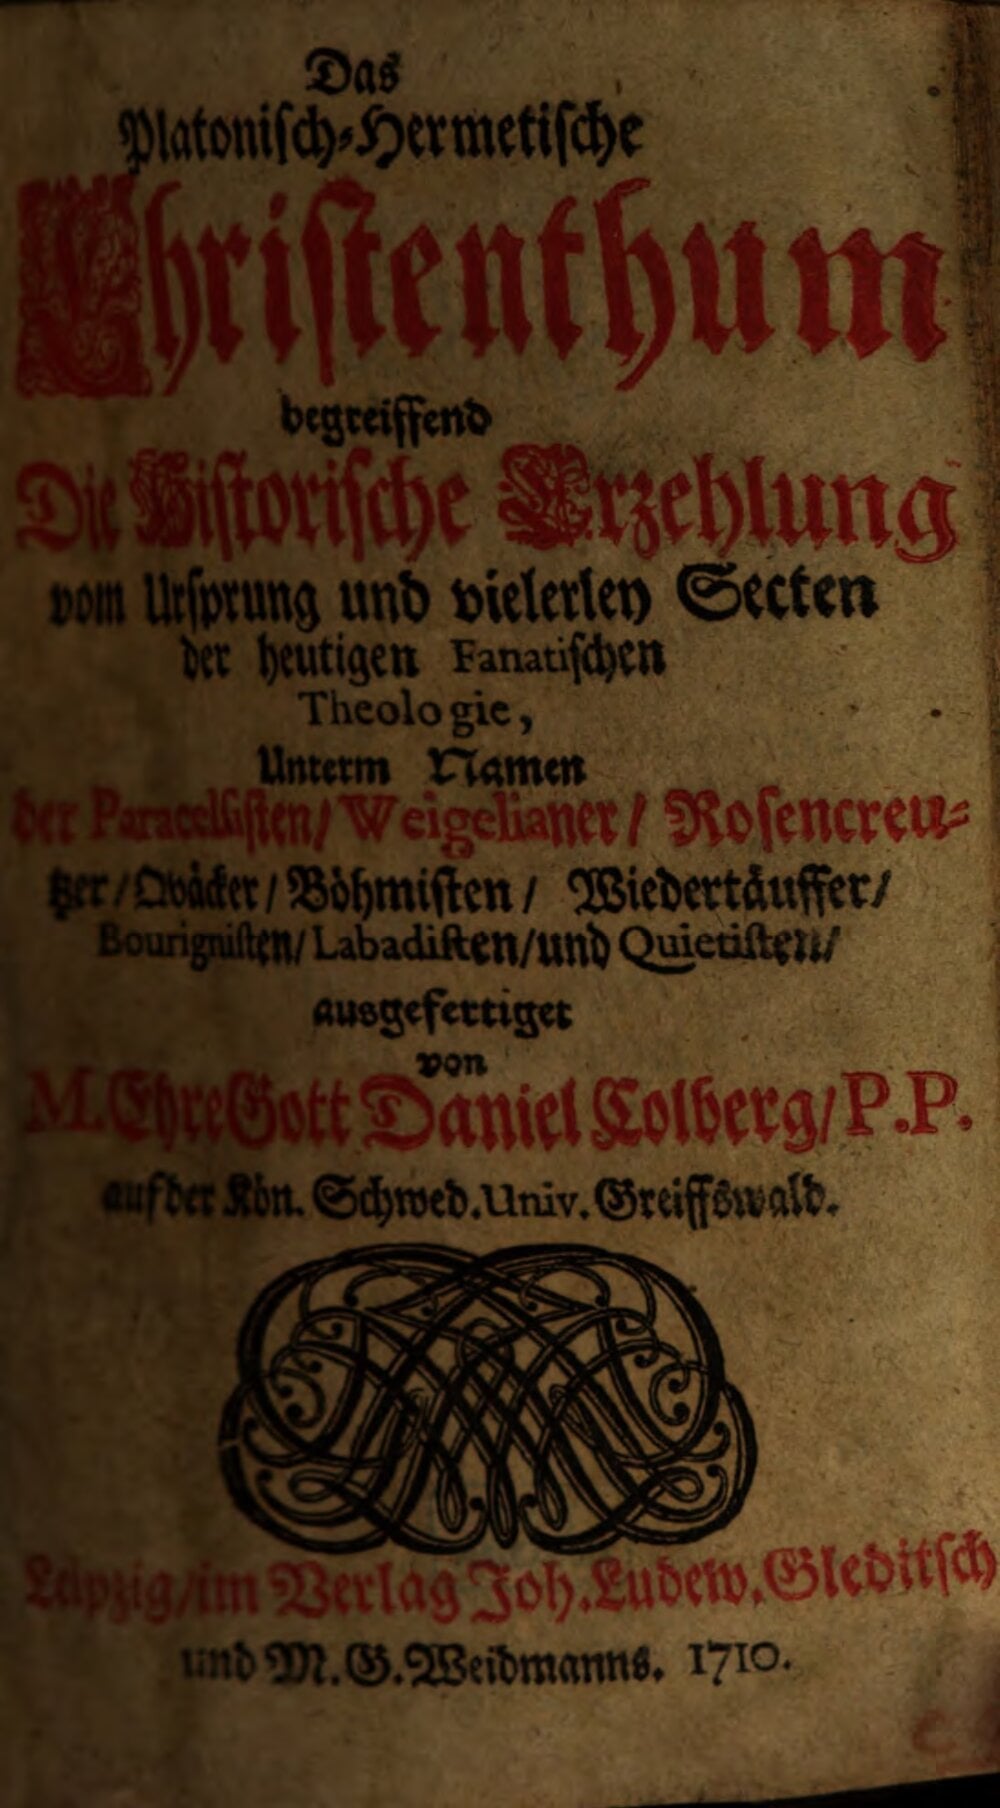 Das
Platoniſch-Hermetiſche
Chriſtenthum
begreiffend
Die Hiſtoriſche Erzehlung
vom Urſprung und vielerley Secten
der heutigen Fanatiſchen
Theologie,
Unterm Namen
der Paracelſiſten/ Weigelianer/ Roſencreu-
tzer/ Qvåcker/ Bòhmiſten/ Wiedertåuffer/
Bourigniſten/ Labadiſten/ und Quietiſten/
ausgefertiget
von
M. EhreGott Daniel Colberg/ P.P.
auf der Kòn. Schwed. Univ. Greiffswald.
Leipzig/ im Verlag Joh. Ludew. Gleditſch
und M. G. Weidmanns. 1710.